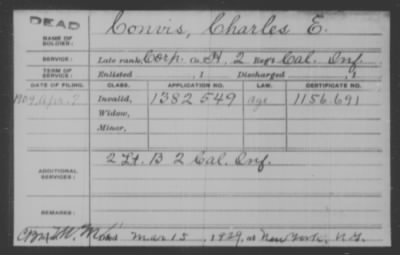 DEAD
NAME OF SOLDIER: Convis, Charles E.
SERVICE: Late rank, Corp. Co. H, 2 Reg't Cal. Inf.
TERM OF SERVICE: Enlisted , 1 Discharged , 1
DATE OF FILING. CLASS. APPLICATION NO. LAW. CERTIFICATE NO.
1909, Apr. 7 Invalid, 1382 549 age 1156.691
Widow,
Minor,
ADDITIONAL SERVICES: 2 Lt. B 2 Cal. Inf.
REMARKS:
Mar 15, 1929, at New York, N.Y.